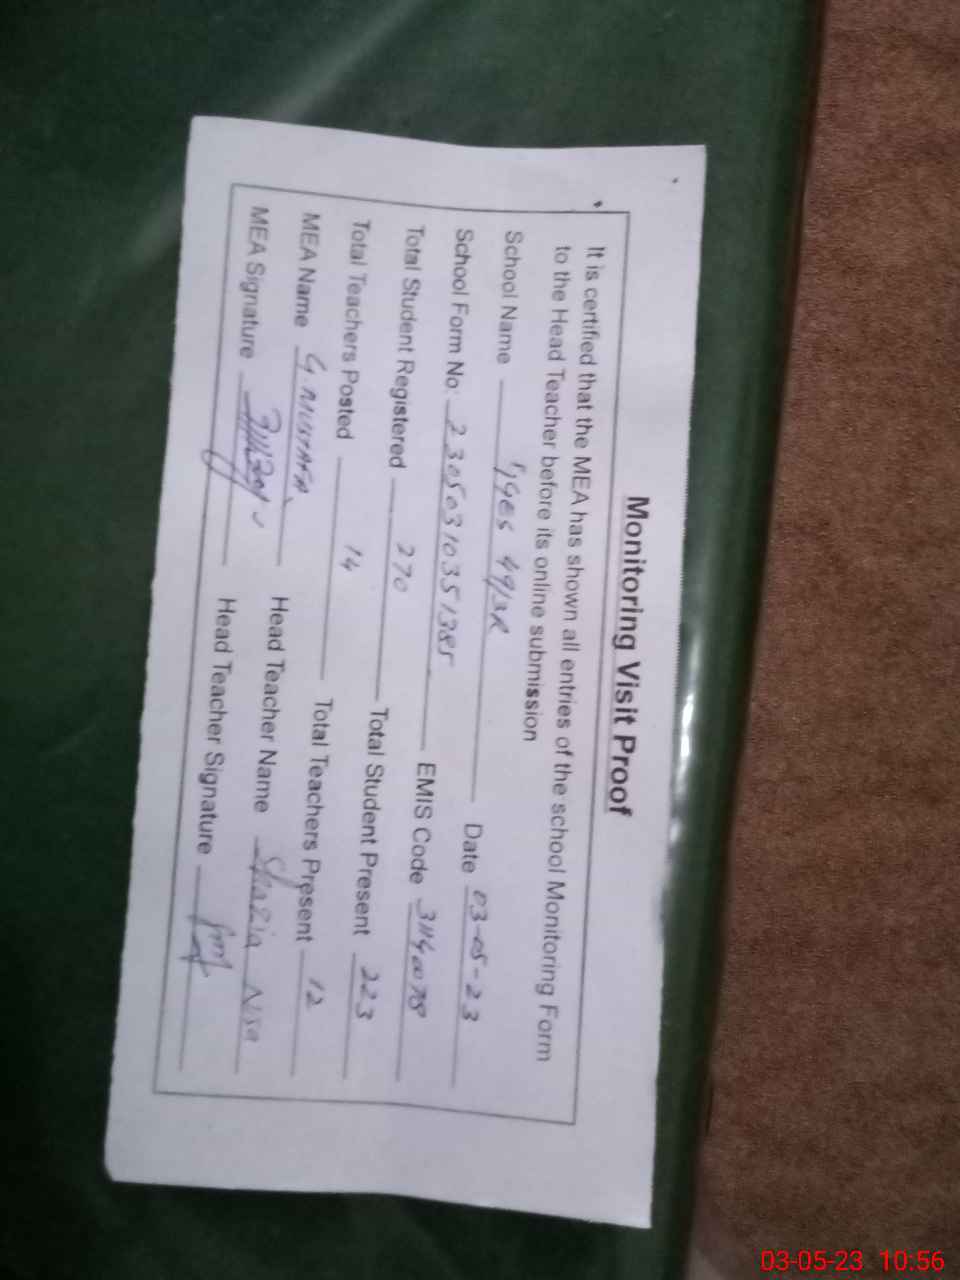 Monitoring Visit Proof
It is certified that the MEA has shown all entries of the school Monitoring Form
to the Head Teacher before its online submission
School Name 49/3R Date 03-05-23
School Form No: 23050310351385 EMIS Code 31140078
Total Student Registered 270 Total Student Present 223
Total Teachers Posted 14 Total Teachers Present 12
MEA Name G. MUSTAFA Head Teacher Name Shazia Nisa
MEA Signature Head Teacher Signature
03-05-23 10:56